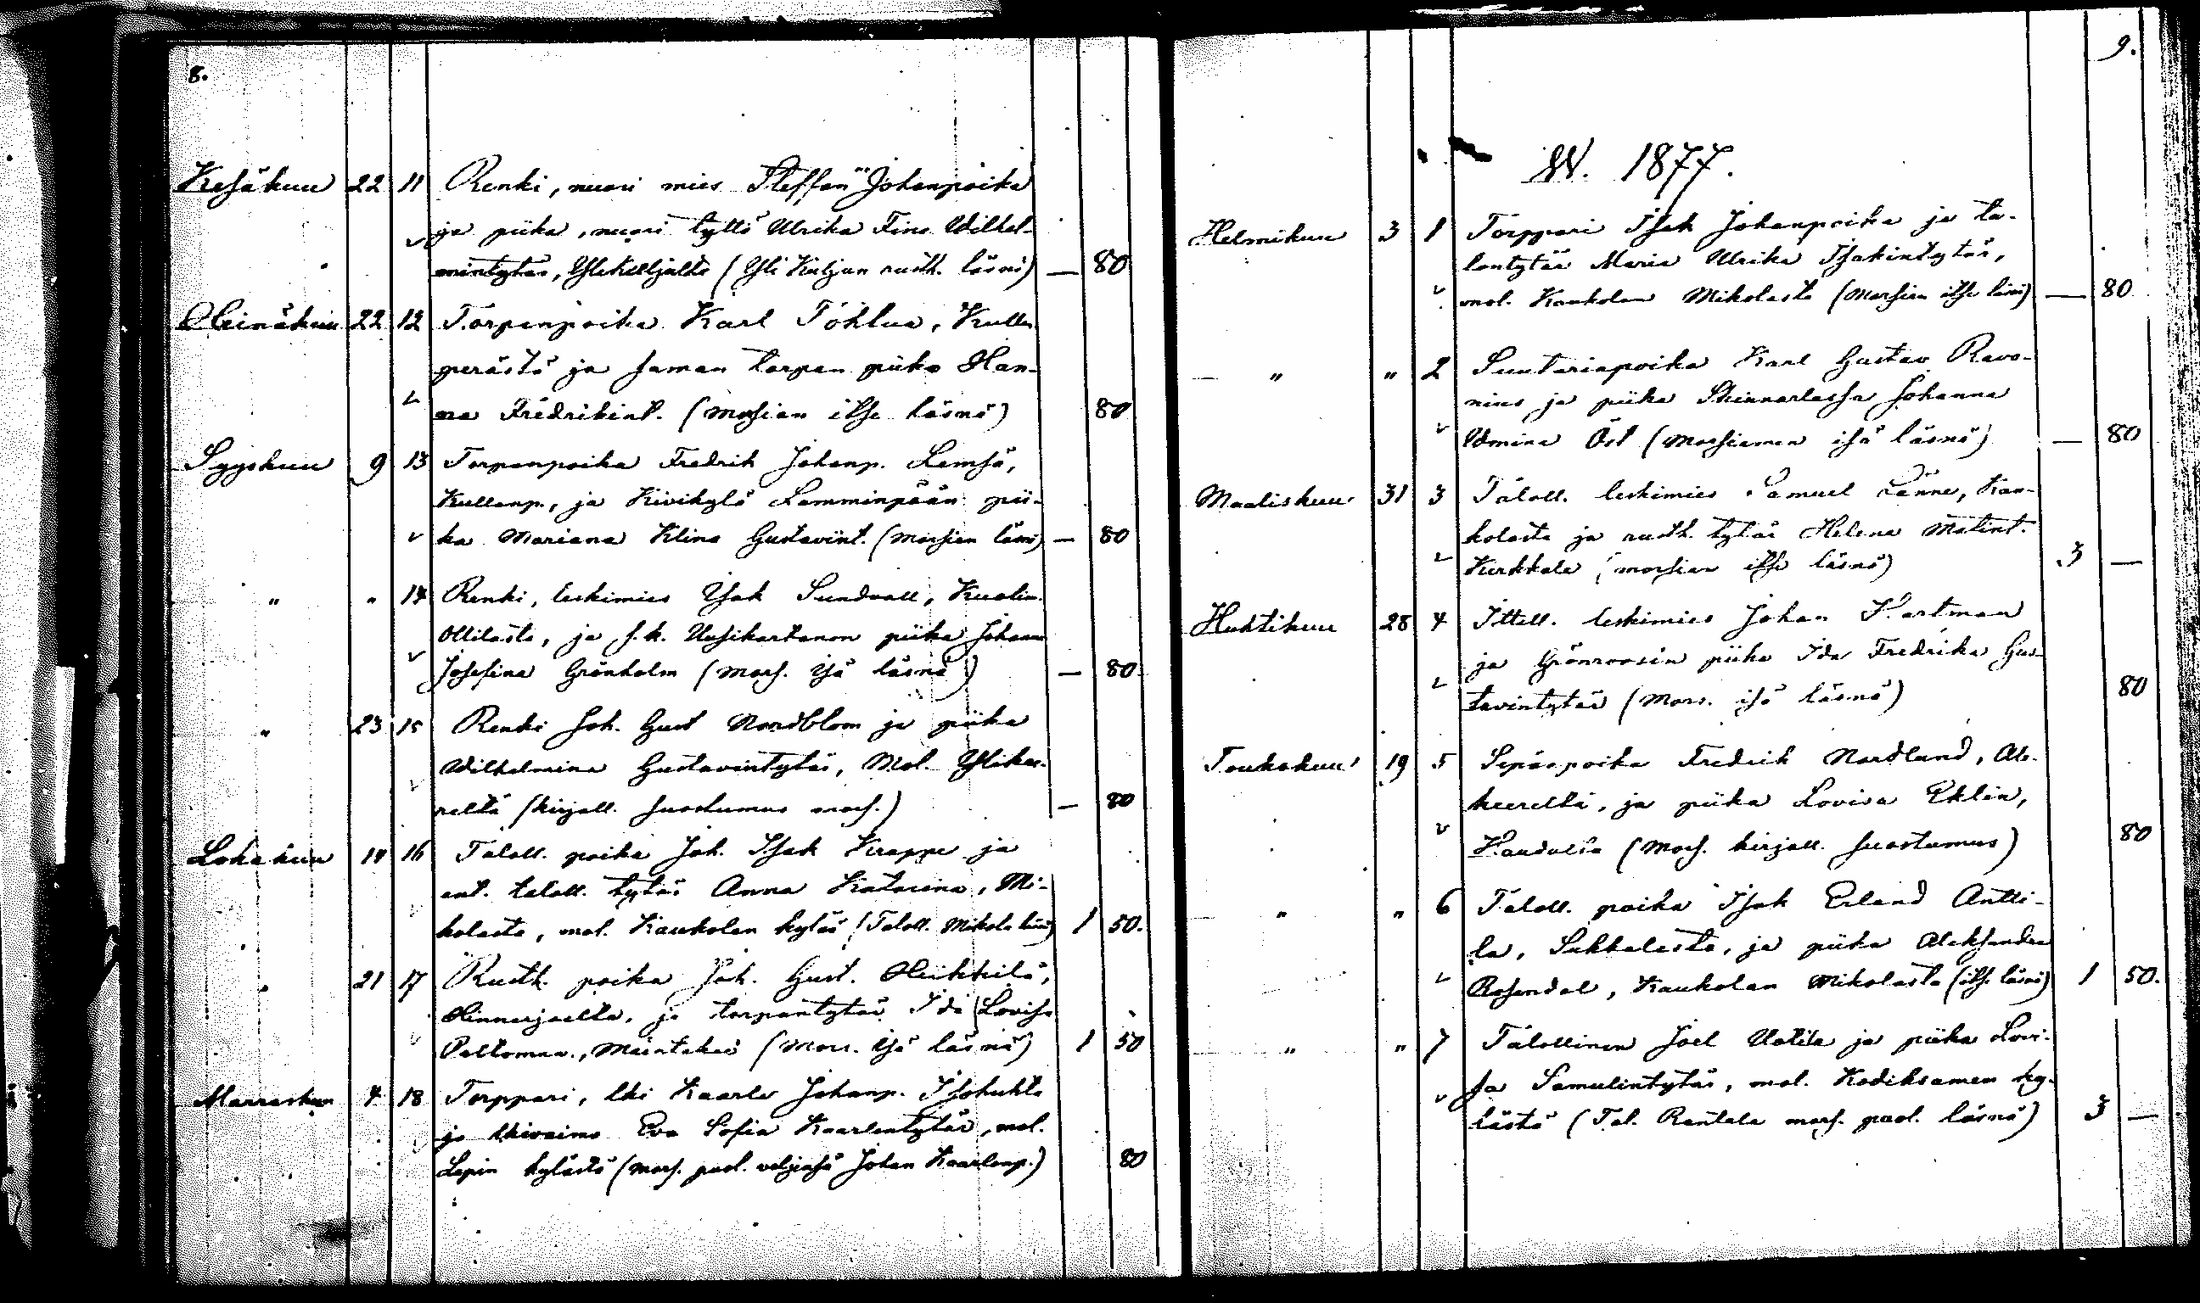 8.
Kesäkuu 22 11 Renki, nuori mies Steffan Johanpoika
ja piika, nuori tyttö Ulrika Fina Wilhel-
mintytär, Ylikuljulta (Yli Kuljun rusth. läsnä) — 80
Heinäkuu 22 12 Torpanpoika Karl Tohlua, Kullan
perästä ja saman torpan piika Han-
na Fredrikint. (Morsian itse läsnä) 80
Syyskuu 9 13 Torpanpoika Fredrik Johanp. Lamsä,
Kullanp., ja Kivikylä Lamminpään pii-
ka Mariana Klina Gustavint. (Morsian läsnä) — 80
" " 14 Renki, leskimies Isak Sundvall, Kuolim.
Ollilasta, ja s.k. Uusikartanon piika Johanna
Josefina Grönholm (Mors. Isä läsnä) — 80.
" 23 15 Renki Joh. Gust Nordblom ja piika
Wilhelmina Gustavintytär, Mol. Ylikee-
reltä (kirjall. suostumus mors.) — 80
Lokakuu 14 16 Taloll. poika Joh. Isak Krappe ja
ent. taloll. tytär Anna Katarina, Mi-
kolasta, mol. Kaukolan kylää (Taloll. Mikola läsnä) 1 50.
" 21 17 Rusth. poika Joh. Gust. Heikkilä,
Hinnerjoelta, ja torpantytär Ida Lovisa
Paltoman., Mäntakai (Mors. Isä läsnä) 1 50
Marraskuu 4 18 Torppari, lki Kaarle Johanp. Isohuhta
ja Uhivaimo Eva Sofia Kaarlentytär, mol.
Lapin kylästä (mors. puol. veljensä Johan Kaarlenp.) 80
9.
W. 1877.
Helmikuu 3 1 Torppari Isak Johanpoika ja ta-
lontytär Maria Ulrika Isakintytär,
mol. Kaukolan Mikolasta (Morsian itse läsnä) — 80
" " 2 Suutarinpoika Karl Gustav Ravo-
nius ja piika Skinnarlassa Johanna
Wmina Öst (Morsiamen isä läsnä) — 80
Maaliskuu 31 3 Taloll. leskimies Samuel Länne, Kau-
kolasta ja rusth. tytär Helena Matint.
Kirkkala (morsian itse läsnä) 3 —
Huhtikuu 28 4 Ittell. leskimies Johan Hartman
ja Grönroosin piika Ida Fredrika Gus-
tavintytär (Mors. isä läsnä) 80
Toukokuu 19 5 Sepänpoika Fredrik Nordlund, Ala-
keereltä, ja piika Lovisa Eklin,
Kaudulla (Mors. kirjall. suostumus) 80
" " 6 Taloll. poika Isak Erland Antti-
la, Sukkalasta, ja piika Aleksandra
Rosendal, Kaukolan Mikolasta (itse läsnä) 1 50.
" " 7 Talollinen Joel Uotila ja piika Lovi-
sa Samulintytär, mol. Kodiksamen ky-
lästä (Tal. Rantala mors. puol. läsnä) 3 —